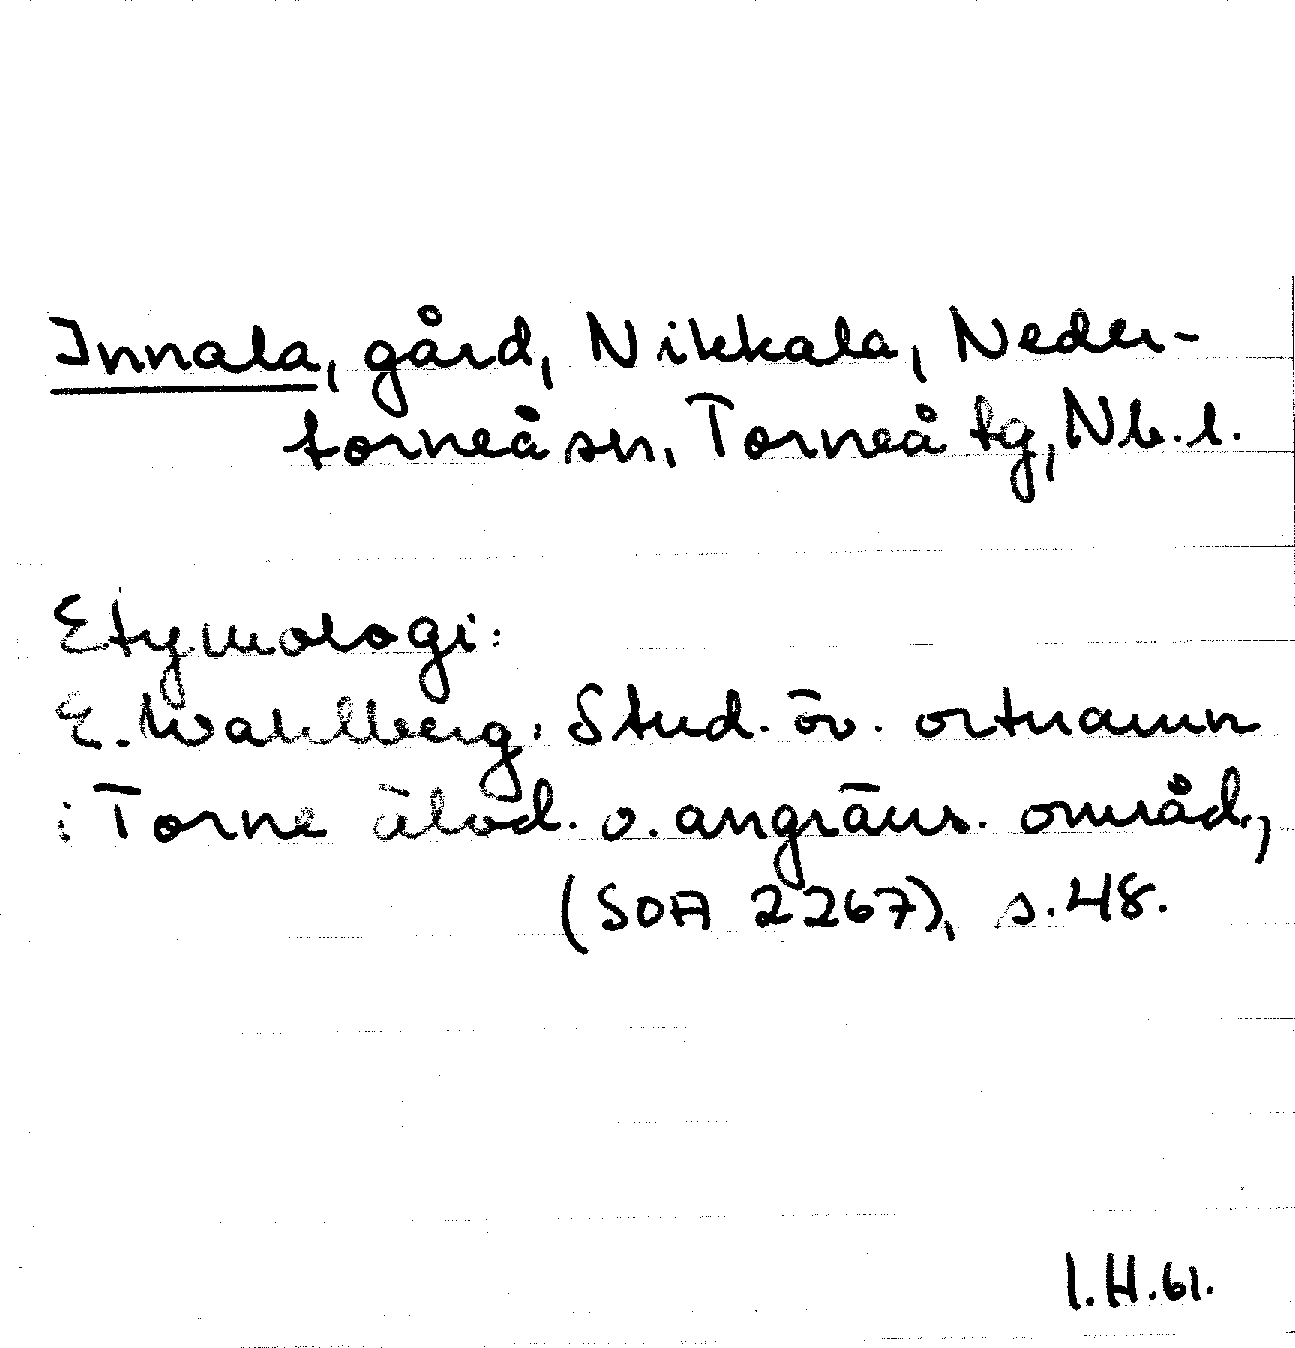 Innala, gård, Nikkala, Neder-
torneå sn, Torneå tg, Nb. l.
Etymologi:
E. Wahlberg: Stud. öv. ortnamn
i Torne älvd. o. angräns. områd.,
(SOA 2267), s. 48.
I.H.61.